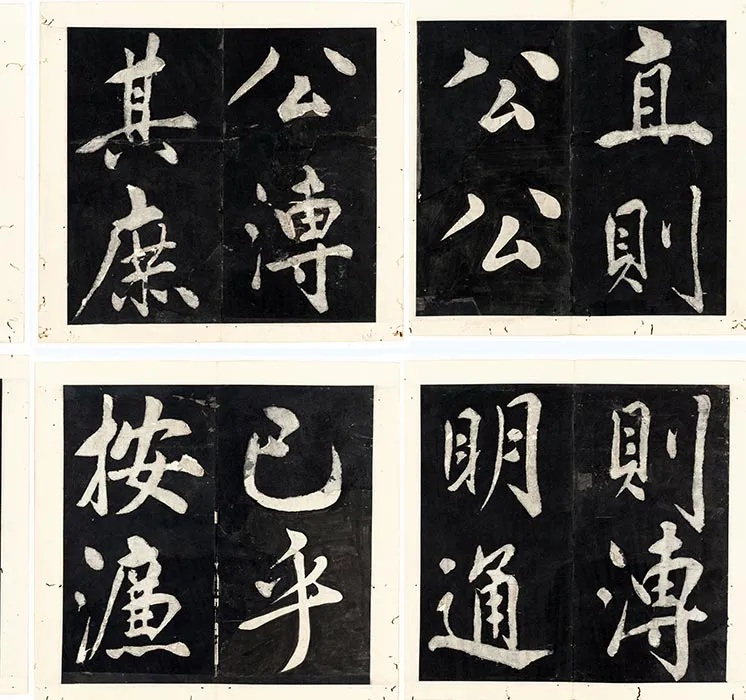 直則
公公
則溥
明通
公溥
其庶
已乎
按濂